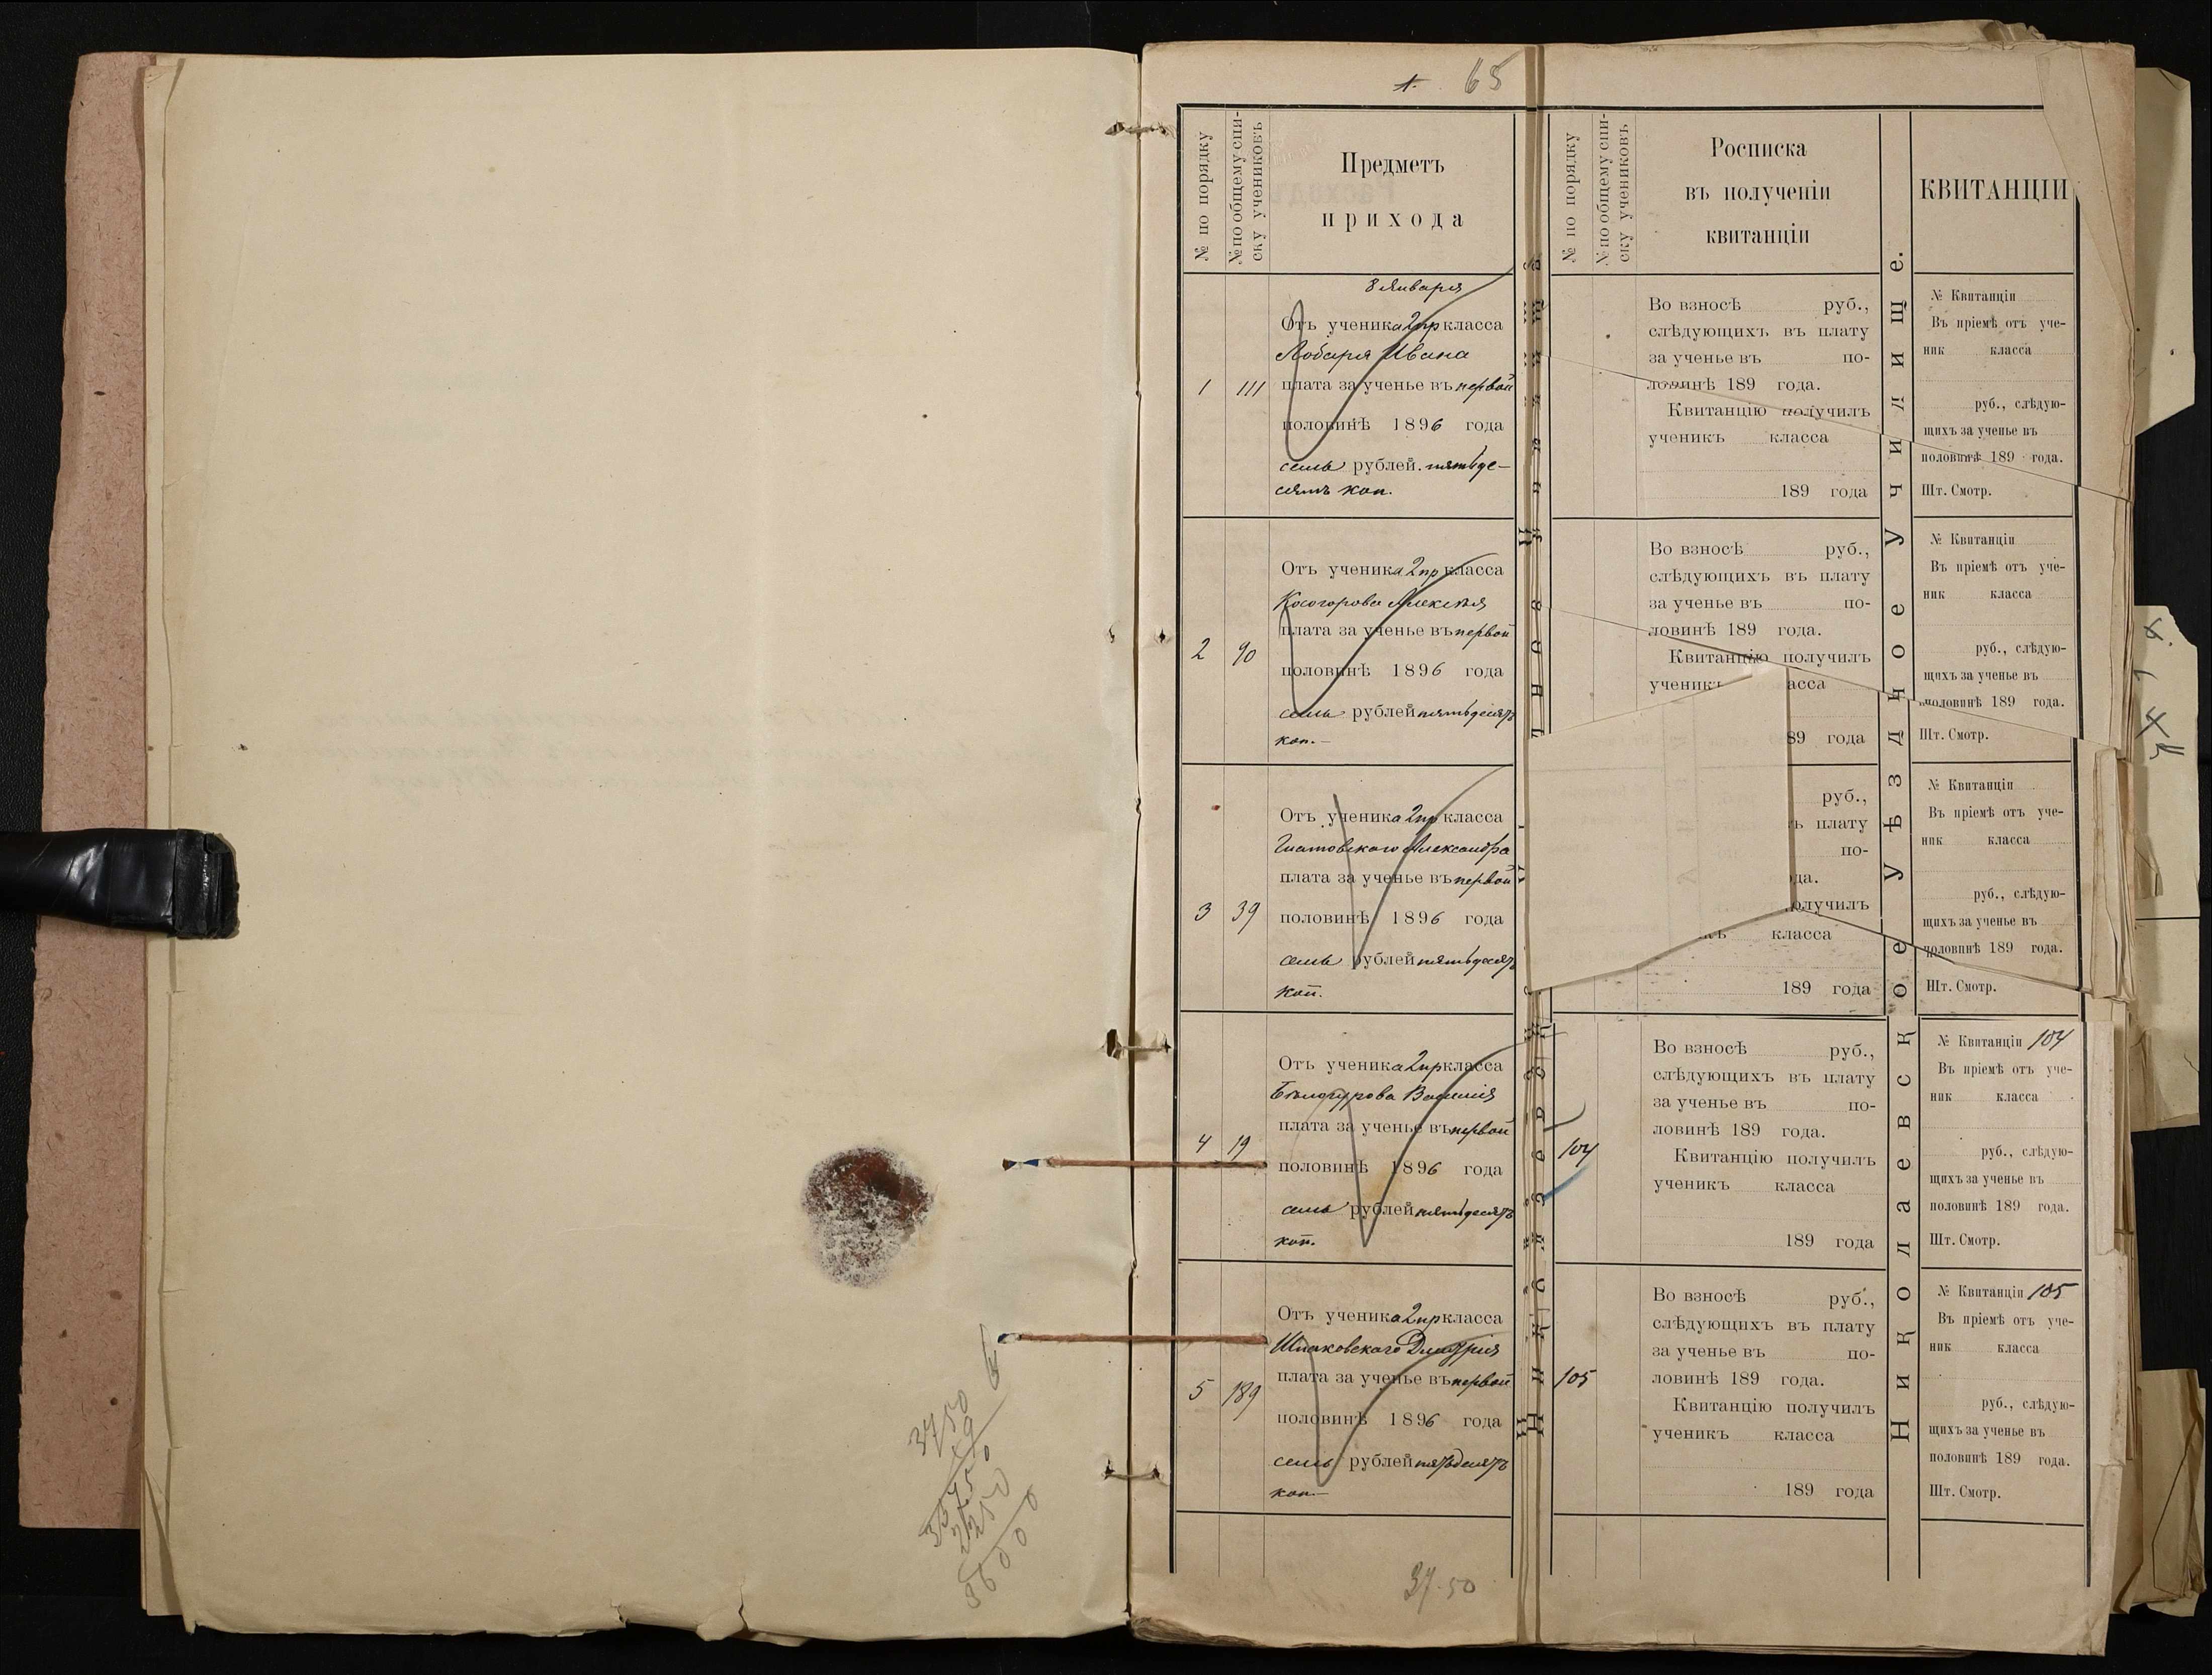 1. 65
№ по порядку
№ по общему спи-
ску учениковъ
Предметъ
прихода
8 Января
Отъ ученика 2 пр класса
Лобаря Ивана
1 111 плата за ученье въ первой
половинѣ 1896 года
семь рублей. пятьде-
сятъ коп.
Отъ ученика 2 пр класса
Косогорова Алексѣя
плата за ученье въ первой
2 90
половинѣ 1896 года
семь рублей пятьдесятъ
коп.—
Отъ ученика 2 пр класса
Александра
плата за ученье въ первой
3 39 половинѣ 1896 года
семь рублей пятьдесятъ
коп.
Отъ ученика 2 пр класса
Бѣлогурова Василія
плата за ученье въ первой
4 19
половинѣ 1896 года
семь рублей пятьдесятъ
коп.
Отъ ученика 2 пр класса
Шпаковскаго Дмитрія
плата за ученье въ первой
5 189
половинѣ 1896 года
семь рублей пятьдесятъ
коп.—
37.50
№ по порядку
№ по общему спи-
ску учениковъ
Росписка
въ полученіи
квитанціи
Во взносѣ руб.,
слѣдующихъ въ плату
за ученье въ по-
ловинѣ 189 года.
Квитанцію получилъ
ученикъ класса
189 года
Во взносѣ руб.,
слѣдующихъ въ плату
за ученье въ по-
ловинѣ 189 года.
Квитанцію получилъ
ученикъ асса
89 года
руб.,
ъ плату
по-
да.
олучилъ
къ класса
189 года
Во взносѣ руб.,
слѣдующихъ въ плату
за ученье въ по-
ловинѣ 189 года.
104
Квитанцію получилъ
ученикъ класса
189 года
Во взносѣ руб.,
слѣдующихъ въ плату
за ученье въ по-
105 ловинѣ 189 года.
Квитанцію получилъ
ученикъ класса
189 года
Николаевское Уѣздное Училище.
КВИТАНЦІИ
№ Квитанціи
Въ пріемѣ отъ уче-
ник класса
руб., слѣдую-
щихъ за ученье въ
половинѣ 189 года.
Шт. Смотр.
№ Квитанціи
Въ пріемѣ отъ уче-
ник класса
руб., слѣдую-
щихъ за ученье въ
половинѣ 189 года.
Шт. Смотр.
№ Квитанціи
Въ пріемѣ отъ уче-
ник класса
руб., слѣдую-
щихъ за ученье въ
половинѣ 189 года.
Шт. Смотр.
№ Квитанціи 104
Въ пріемѣ отъ уче-
ник класса
руб., слѣдую-
щихъ за ученье въ
половинѣ 189 года.
Шт. Смотр.
№ Квитанціи 105
Въ пріемѣ отъ уче-
ник класса
руб., слѣдую-
щихъ за ученье въ
половинѣ 189 года.
Шт. Смотр.
3750
2250
36000